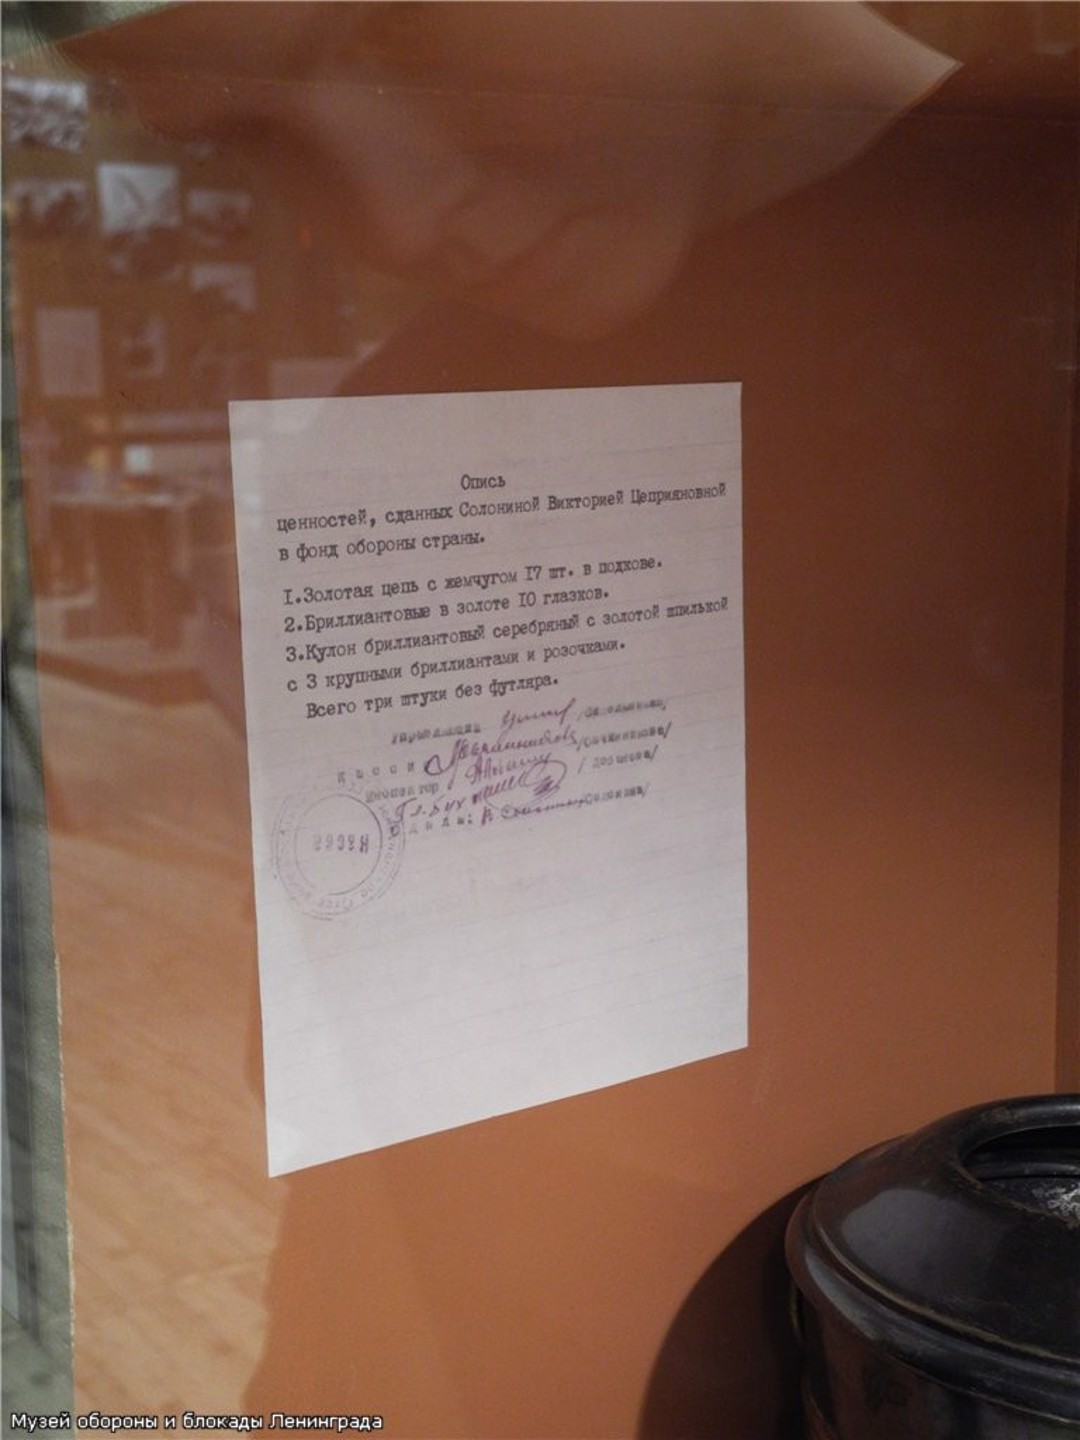 Опись
ценностей, сданных Солониной Викторией Цеприяновной
в фонд обороны страны.
1.Золотая цепь с жемчугом 17 шт. в подкове.
2.Бриллиантовые в золоте 10 глазков.
3.Кулон бриллиантовый серебряный с золотой шпилькой
с 3 крупными бриллиантами и розочками.
Всего три штуки без футляра.
Инспектор
Музей обороны и блокады Ленинграда